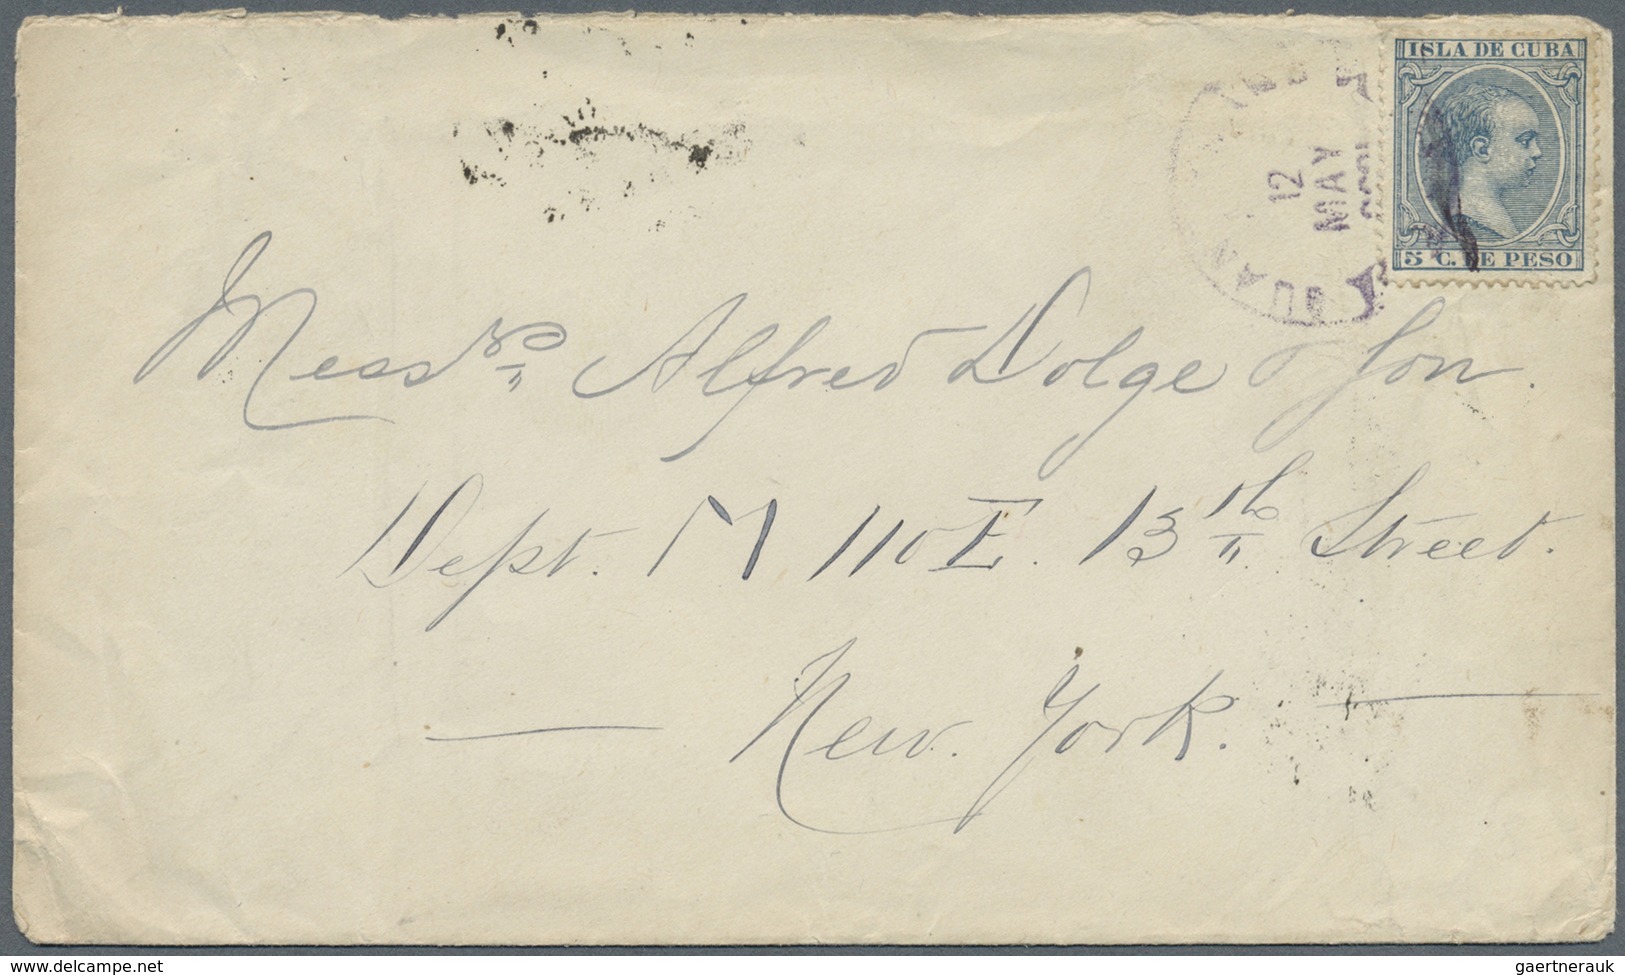 ISLA DE CUBA
5 C. DE PESO
12
MAY
Messrs. Alfred Dolge & Son.
Dept. M 110 E. 13th Street.
New York.
© www.delcampe.net
gaertnerauk